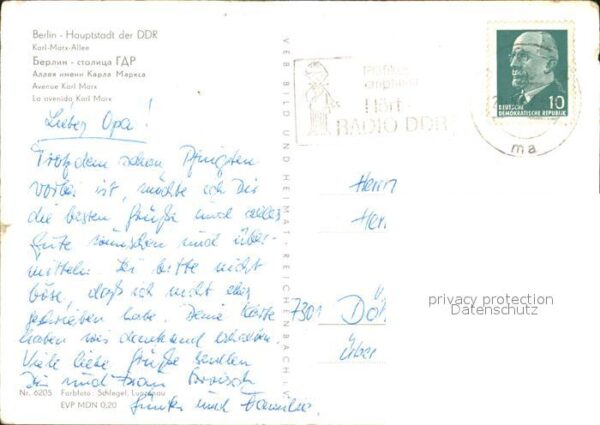 Berlin - Hauptstadt der DDR
Karl-Marx-Allee
Берлин - столица ГДР
Аллея имени Карла Маркса
Avenue Karl Marx
La avenida Karl Marx
Lieber Opa!
Trotzdem schon Pfingsten
vorbei ist, möchte ich Dir
die besten Grüße und alles
Gute wünschen und über-
mitteln. Sei bitte nicht
böse, daß ich nicht eher
geschrieben habe. Deine Karte
haben wir dankend erhalten.
Viele liebe Grüße senden
Dir und Frau
Günter und Familie
Nr. 6205 Farbfoto: Schlegel,
EVP MDN 0,20
VEB BILD UND HEIMAT · REICHENBACH i. V.
Hört
RADIO DDR
DEUTSCHE
DEMOKRATISCHE REPUBLIK
10
ma
Herrn
7301
privacy protection
Datenschutz